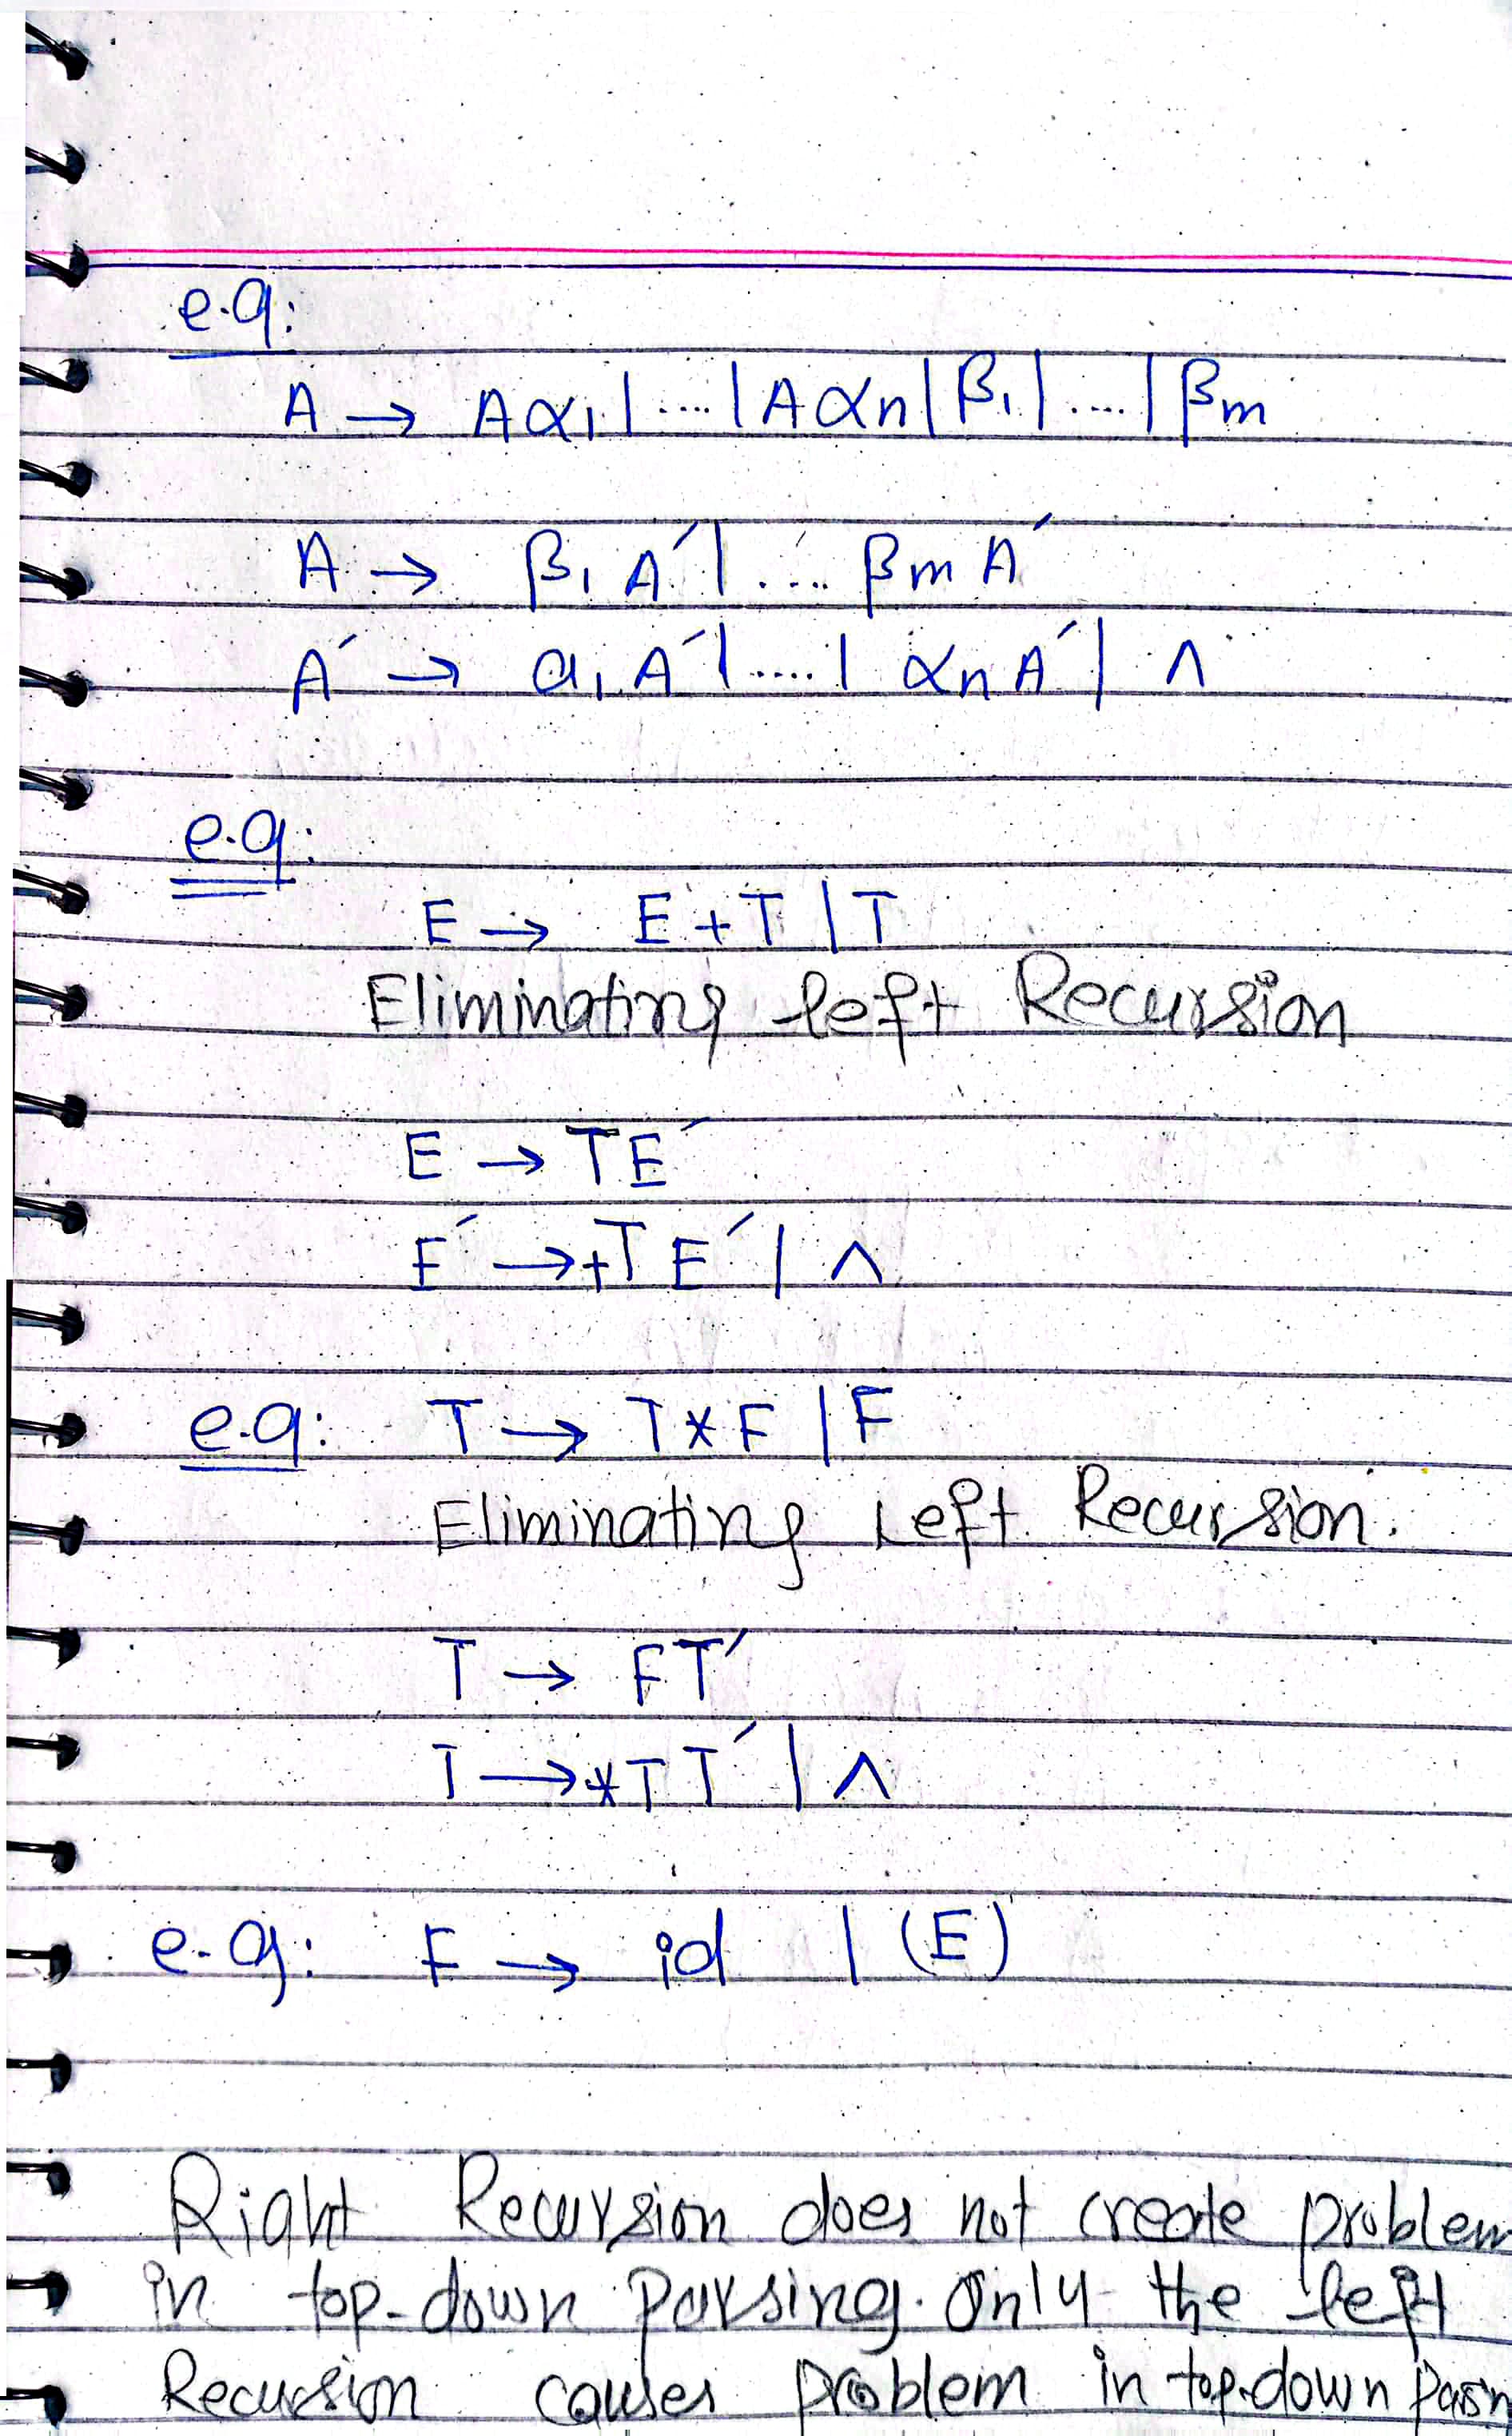 e.g:
A → Aα₁ | .... | Aαn | β₁ | .... | βm
A → β₁ A′ | .... βm A′
A′ → a₁ A′ | ..... | αn A′ | ∧
e.g:
E → E + T | T
Eliminating left Recursion
E → TE′
E′ → +TE′ | ∧
e.g: T → T*F | F
Eliminating Left Recursion.
T → FT′
T → *TT′ | ∧
e.g: F → id | (E)
Right Recursion does not create problem
in top-down Parsing. Only the left
Recursion causes problem in top-down